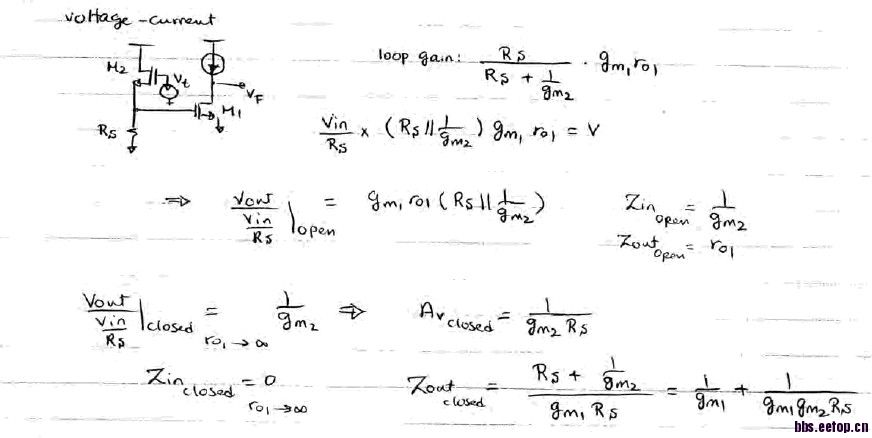 voltage-current
M2
Vt
VF
M1
Rs
loop gain: Rs / (Rs + 1/gm2) · gm1 ro1
Vin/Rs × (Rs || 1/gm2) gm1 ro1 = V
⇒ Vout / (Vin/Rs) |open = gm1 ro1 (Rs || 1/gm2)
Zin open = 1/gm2
Zout open = ro1
Vout / (Vin/Rs) |closed = 1/gm2 ⇒ Av closed = 1 / (gm2 Rs)
ro1 → ∞
Zin closed = 0
ro1 → ∞
Zout closed = (Rs + 1/gm2) / (gm1 Rs) = 1/gm1 + 1/(gm1 gm2 Rs)
bbs.eetop.cn